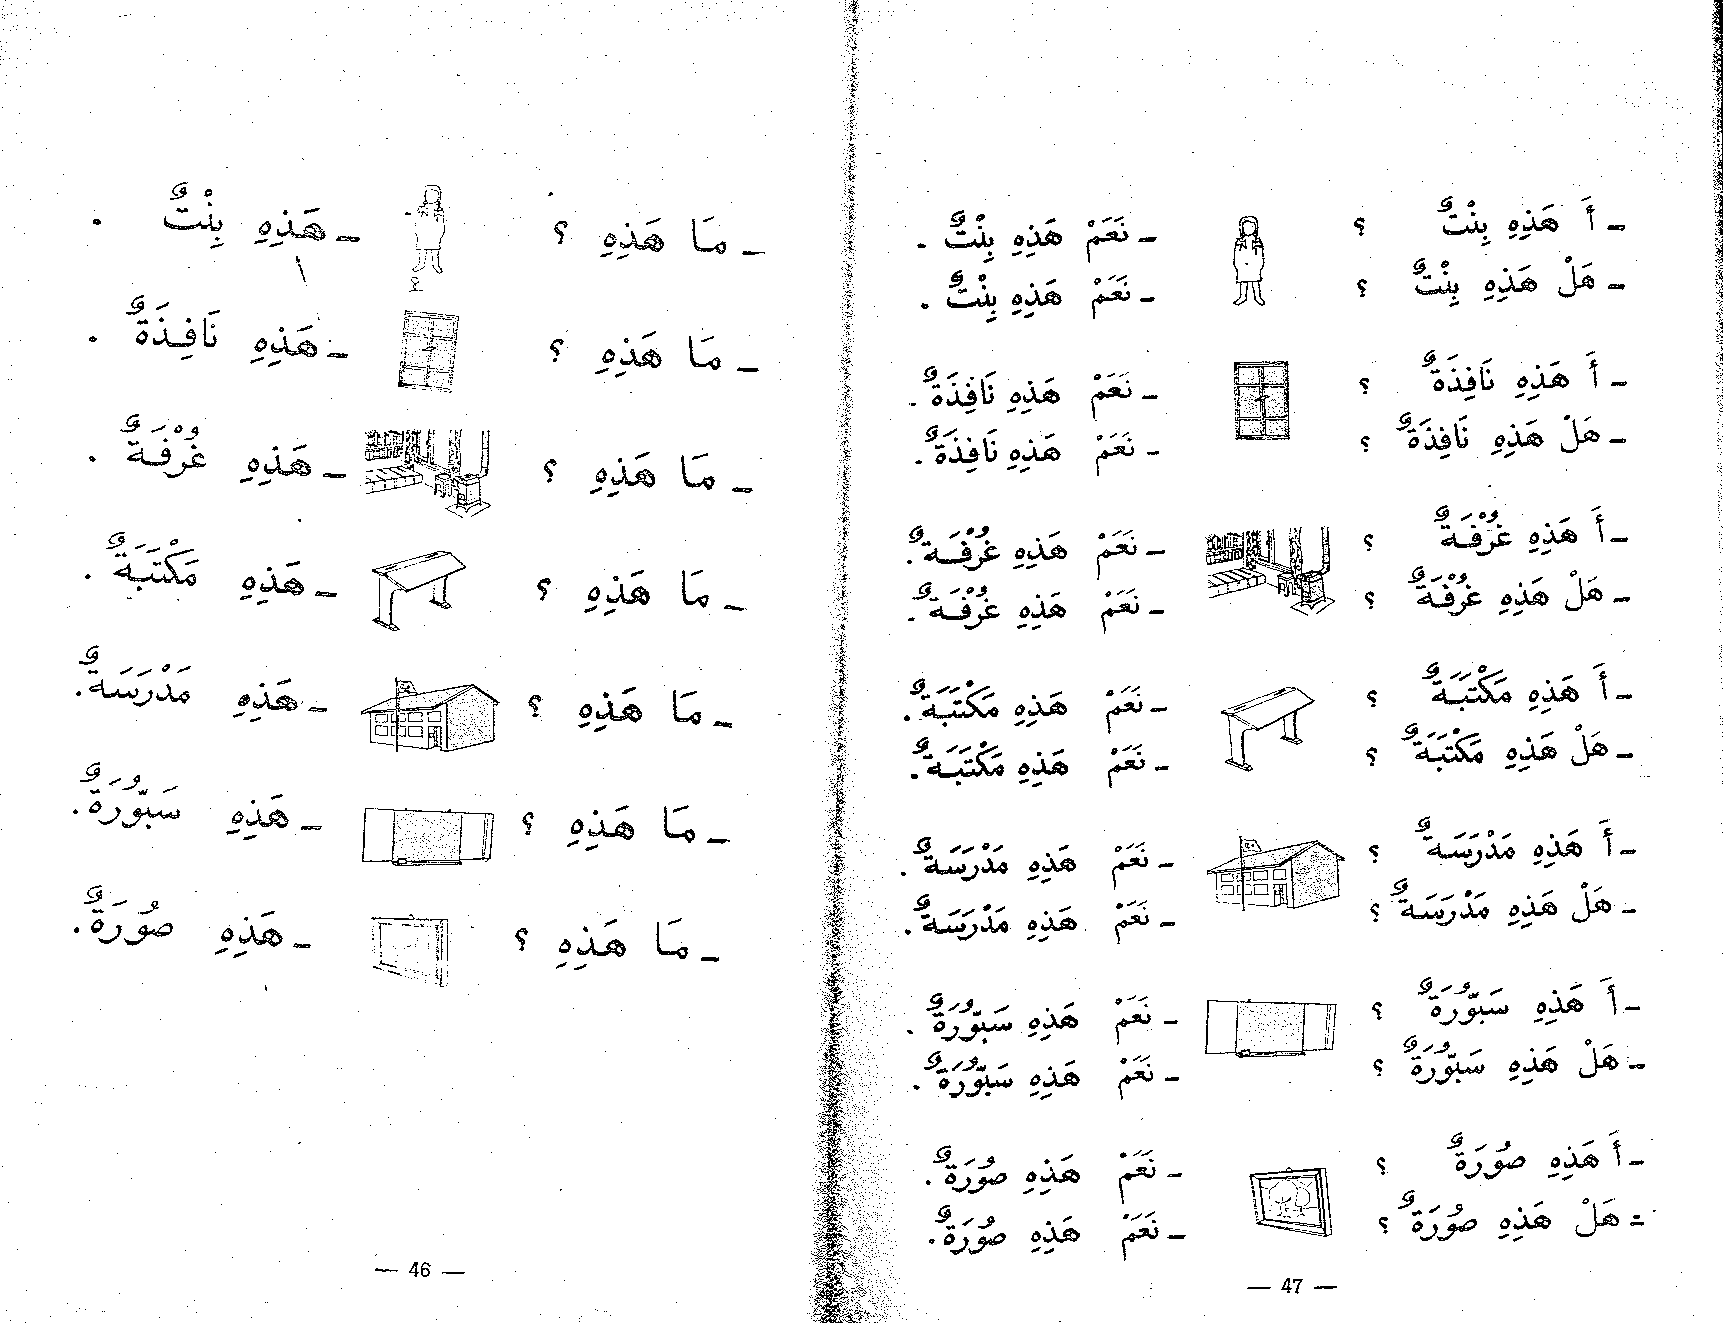 ـ مَا هَذِهِ ؟ ـ هَذِهِ بِنْتٌ .
ـ مَا هَذِهِ ؟ ـ هَذِهِ نَافِذَةٌ .
ـ مَا هَذِهِ ؟ ـ هَذِهِ غُرْفَةٌ .
ـ مَا هَذِهِ ؟ ـ هَذِهِ مَكْتَبَةٌ .
ـ مَا هَذِهِ ؟ ـ هَذِهِ مَدْرَسَةٌ .
ـ مَا هَذِهِ ؟ ـ هَذِهِ سَبُّورَةٌ .
ـ مَا هَذِهِ ؟ ـ هَذِهِ صُورَةٌ .
— 46 —
ـ أَ هَذِهِ بِنْتٌ ؟ ـ نَعَمْ هَذِهِ بِنْتٌ .
ـ هَلْ هَذِهِ بِنْتٌ ؟ ـ نَعَمْ هَذِهِ بِنْتٌ .
ـ أَ هَذِهِ نَافِذَةٌ ؟ ـ نَعَمْ هَذِهِ نَافِذَةٌ .
ـ هَلْ هَذِهِ نَافِذَةٌ ؟ ـ نَعَمْ هَذِهِ نَافِذَةٌ .
ـ أَ هَذِهِ غُرْفَةٌ ؟ ـ نَعَمْ هَذِهِ غُرْفَةٌ .
ـ هَلْ هَذِهِ غُرْفَةٌ ؟ ـ نَعَمْ هَذِهِ غُرْفَةٌ .
ـ أَ هَذِهِ مَكْتَبَةٌ ؟ ـ نَعَمْ هَذِهِ مَكْتَبَةٌ .
ـ هَلْ هَذِهِ مَكْتَبَةٌ ؟ ـ نَعَمْ هَذِهِ مَكْتَبَةٌ .
ـ أَ هَذِهِ مَدْرَسَةٌ ؟ ـ نَعَمْ هَذِهِ مَدْرَسَةٌ .
ـ هَلْ هَذِهِ مَدْرَسَةٌ ؟ ـ نَعَمْ هَذِهِ مَدْرَسَةٌ .
ـ أَ هَذِهِ سَبُّورَةٌ ؟ ـ نَعَمْ هَذِهِ سَبُّورَةٌ .
ـ هَلْ هَذِهِ سَبُّورَةٌ ؟ ـ نَعَمْ هَذِهِ سَبُّورَةٌ .
ـ أَ هَذِهِ صُورَةٌ ؟ ـ نَعَمْ هَذِهِ صُورَةٌ .
ـ هَلْ هَذِهِ صُورَةٌ ؟ ـ نَعَمْ هَذِهِ صُورَةٌ .
— 47 —